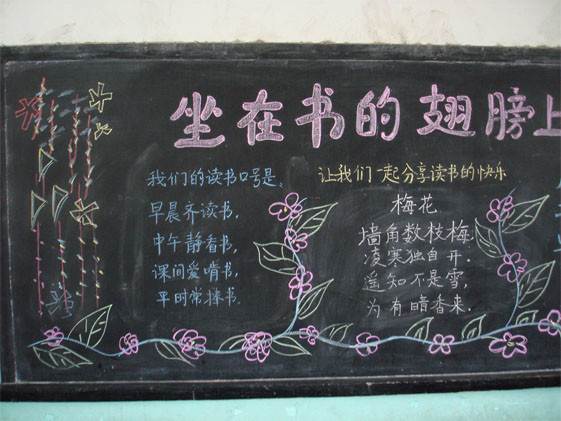 坐在书的翅膀上
我们的读书口号是、
早晨齐读书,
中午静看书,
课间爱啃书,
平时常捧书.
让我们一起分享读书的快乐
梅花
墙角数枝梅,
凌寒独自开.
遥知不是雪,
为有暗香来.